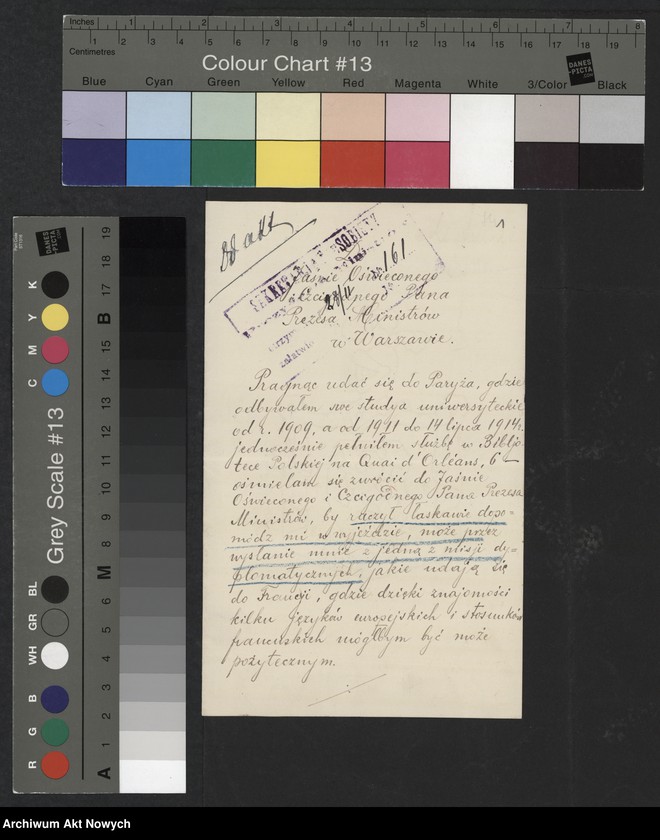 Inches 1 2 3 4 5 6 7 8
1 2 3 4 5 6 7 8 9 10 11 12 13 14 15 16 17 18 19
Centimetres
Colour Chart #13
DANES
-PICTA
.COM
Blue Cyan Green Yellow Red Magenta White 3/Color Black
Grey Scale #13
C M Y K
R G B WH GR BL
A 1 2 3 4 5 6 M 8 9 10 11 12 13 14 15 B 17 18 19
DANES
-PICTA
.COM
1
Do akt
SEKRETARJAT OSOBISTY
28/II 161
Jaśnie Oświeconego
Pana
Prezesa Ministrów
w Warszawie.
Pragnąc udać się do Paryża, gdzie
odbywałem swe studya uniwersyteckie
od r. 1909, a od 1911 do 14 lipca 1914 r.
jednocześnie pełniłem służbę w Bibljo-
tece Polskiej na Quai d'Orléans, 6
ośmielam się zwrócić do Jaśnie
Oświeconego i Czcigodnego Pana Prezesa
Ministrów, by raczył łaskawie dopo-
módz mi w wyjeździe, może przez
wysłanie mnie z jedną z misji dy-
plomatycznych, jakie udają się
do Francji, gdzie dzięki znajomości
kilku języków europejskich i stosunków
francuskich mógłbym być może
pożytecznym.
Archiwum Akt Nowych